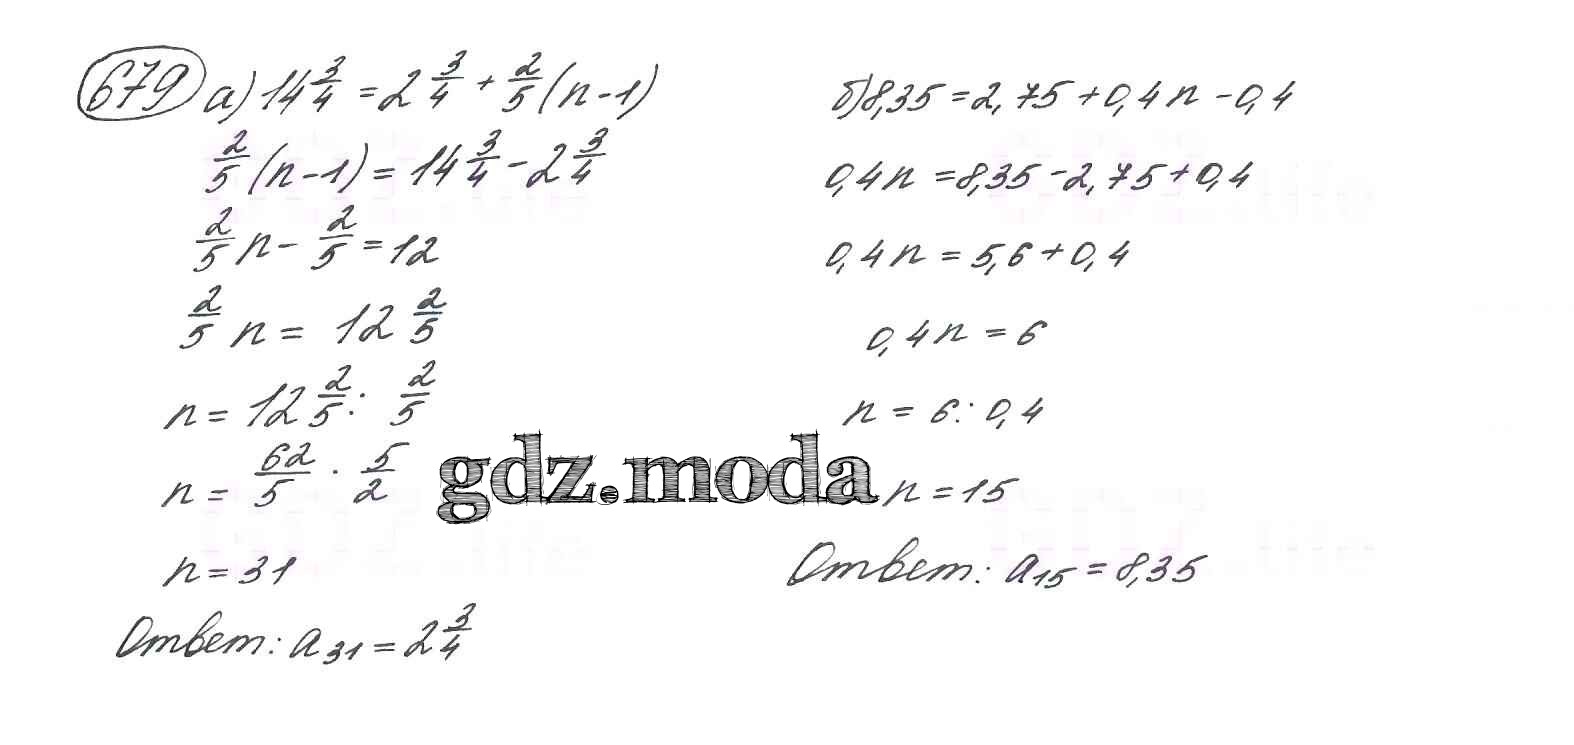 679 а) 14 3/4 = 2 3/4 + 2/5 (n-1)
2/5 (n-1) = 14 3/4 - 2 3/4
2/5 n - 2/5 = 12
2/5 n = 12 2/5
n = 12 2/5 : 2/5
n = 62/5 · 5/2
n = 31
Ответ: a₃₁ = 2 3/4
б) 8,35 = 2,75 + 0,4n - 0,4
0,4n = 8,35 - 2,75 + 0,4
0,4n = 5,6 + 0,4
0,4n = 6
n = 6 : 0,4
n = 15
Ответ: a₁₅ = 8,35
gdz.moda